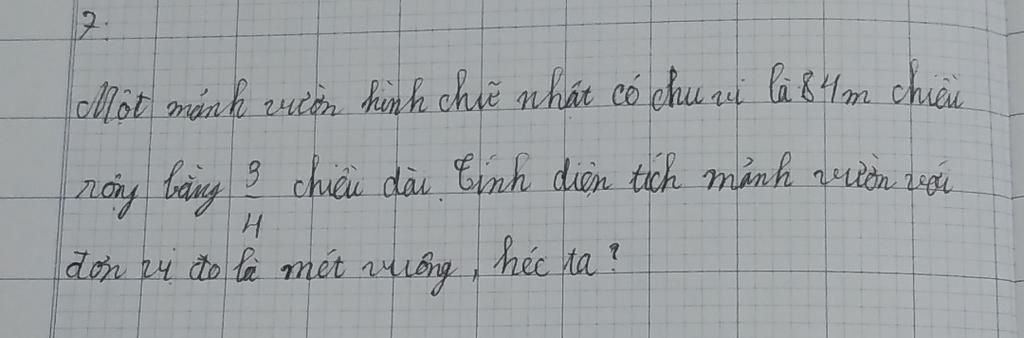 7.
Một mảnh vườn hình chữ nhật có chu vi là 84m chiều
rộng bằng 3/4 chiều dài. Tính diện tích mảnh vườn với
đơn vị đo là mét vuông, héc ta?